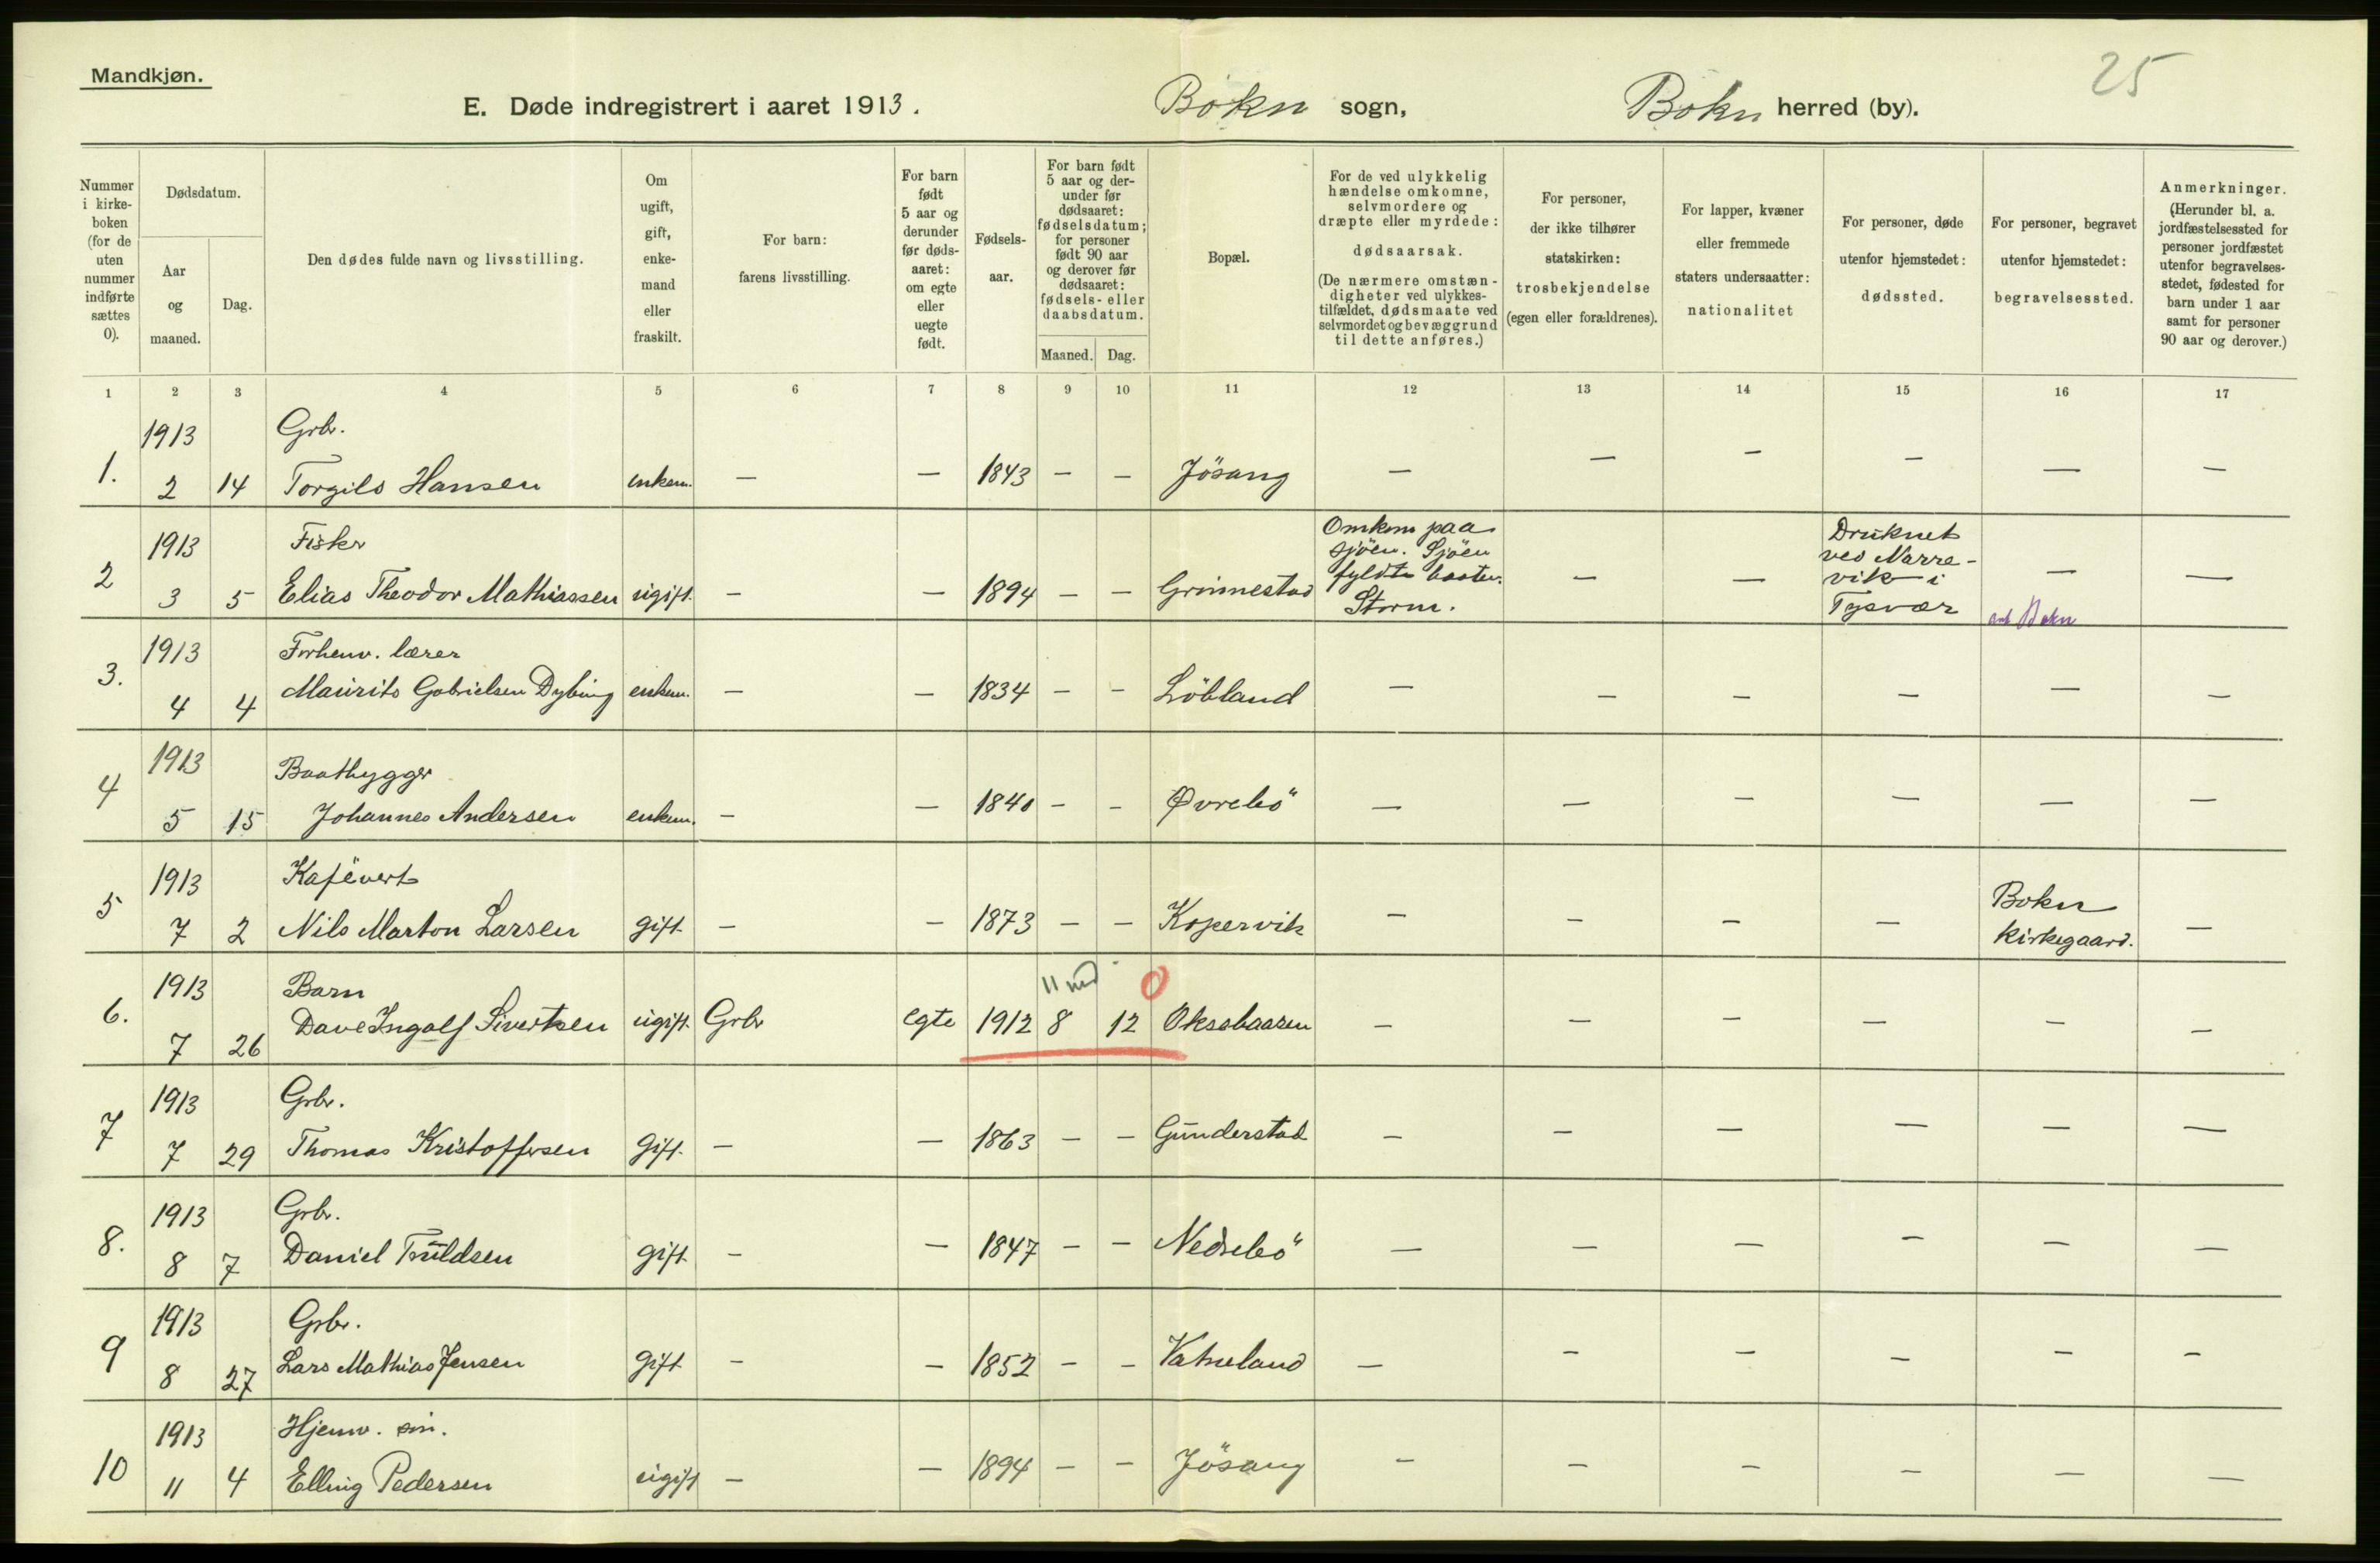 Mandkjøn.
25
E. Døde indregistrert i aaret 1913. Bokn sogn, Bokn herred (by).
Nummer i kirke-boken (for de uten nummer indførte sættes 0).
Dødsdatum.
Aar og maaned.
Dag.
Den dødes fulde navn og livsstilling.
Om ugift, gift, enke-mand eller fraskilt.
For barn: farens livsstilling.
For barn født 5 aar og derunder før døds-aaret: om egte eller uegte født.
Fødsels-aar.
For barn født 5 aar og der-under før dødsaaret: fødselsdatum; for personer født 90 aar og derover før dødsaaret: fødsels- eller daabsdatum.
Maaned. Dag.
Bopæl.
For de ved ulykkelig hændelse omkomne, selvmordere og dræpte eller myrdede: dødsaarsak. (De nærmere omstæn-digheter ved ulykkes-tilfældet, dødsmaate ved selvmordet og bevæggrund til dette anføres.)
For personer, der ikke tilhører statskirken: trosbekjendelse (egen eller forældrenes).
For lapper, kvæner eller fremmede staters undersaatter: nationalitet
For personer, døde utenfor hjemstedet: dødssted.
For personer, begravet utenfor hjemstedet: begravelsessted.
Anmerkninger. (Herunder bl. a. jordfæstelsessted for personer jordfæstet utenfor begravelses-stedet, fødested for barn under 1 aar samt for personer 90 aar og derover.)
1 2 3 4 5 6 7 8 9 10 11 12 13 14 15 16 17
1913 Grbr.
1. 2 14 Torgils Hansen enkem. — — 1843 — — Jösang — — — — — —
1913 Fisker
2 3 5 Elias Theodor Mathiassen ugift. — — 1894 — — Grinnestad
Omkom paa
sjöen. Sjöen
fyldte baaten.
Storm.
— —
Druknet
ved Narre-
vik i
Tysvær
—
Bokn
—
1913 Forhenv. lærer
3. 4 4 Maurits Gabrielsen Dybing enkem. — — 1834 — — Löbland — — — — — —
1913 Baatbygger
4 5 15 Johannes Andersen enkem. — — 1840 — — Øvrebö — — — — — —
1913 Kafévert
5 7 2 Nils Marton Larsen gift. — — 1873 — — Kopervik — — — —
Bokn
Kirkegaard.
—
1913 Barn 11 md 0
6. 7 26 Dave Ingolf Sivertsen ugift. Grbr egte 1912 8 12 Oksebaasen — — — — — —
1913 Grbr.
7 7 29 Thomas Kristoffersen gift. — — 1863 — — Gunderstad — — — — — —
1913 Grbr.
8. 8 7 Daniel Truldsen gift. — — 1847 — — Nedrebö — — — — — —
1913 Grbr.
9 8 27 Lars Mathias Jensen gift. — — 1852 — — Vatneland — — — — — —
1913 Hjemv.
10 11 4 Elling Pedersen ugift — — 1894 — — Jösang — — — — — —